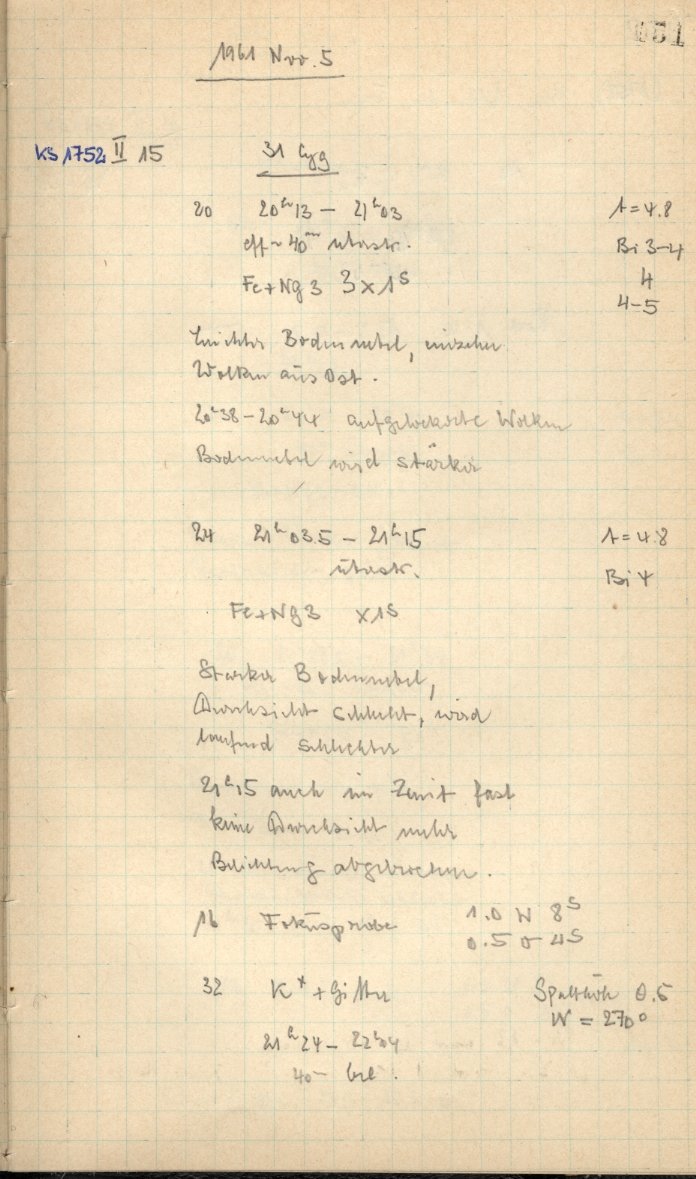 051
1961 Nov. 5
KS 1752 II 15 31 Cyg
20 20ʰ13 – 21ʰ03 t = 4.8
eff ~ 40ᵐ Bi 3-4
Fe+Ng 3 3x1ˢ 4
4-5
Leichter Bodennebel, einzelne
Wolken aus Ost.
20ʰ38 – 20ʰ44 aufgelockerte Wolken
Bodennebel wird stärker
24 21ʰ03.5 – 21ʰ15 t = 4.8
Bi 4
Fe+Ng 3 x1ˢ
Starker Bodennebel,
Durchsicht schlecht, wird
laufend schlechter
21ʰ15 auch im Zenit fast
keine Durchsicht mehr
Belichtung abgebrochen.
16 Fokusprobe 1.0 W 8ˢ
0.5 σ 4ˢ
32 K* + Gitter Spalthöh 0.5
W = 270°
21ʰ24 – 22ʰ04
40ᵐ bel.